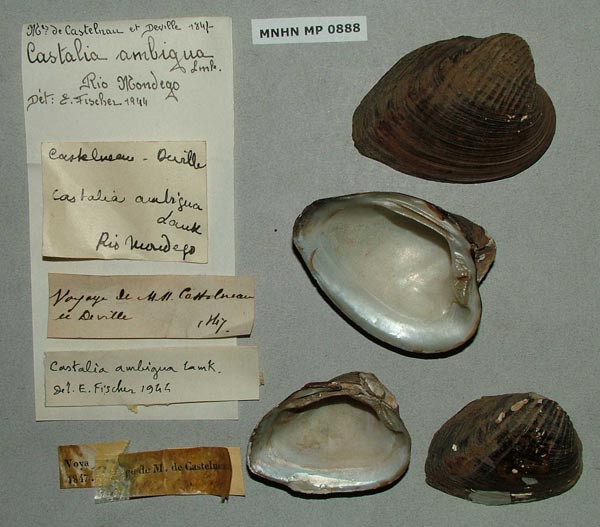 MNHN MP 0888
Mrs de Castelnau et Deville 1847
Castalia ambigua
Lmk.
Rio Mondego
Dét: E. Fischer 1944
Castelneau - Deville
Castalia ambigua
Lamk
Rio Mondego
Voyage de MM. Castelneau
et Deville
1847.
Castalia ambigua Lamk.
Dét. E. Fischer 1944
Voya de M. de Casteln
1847.